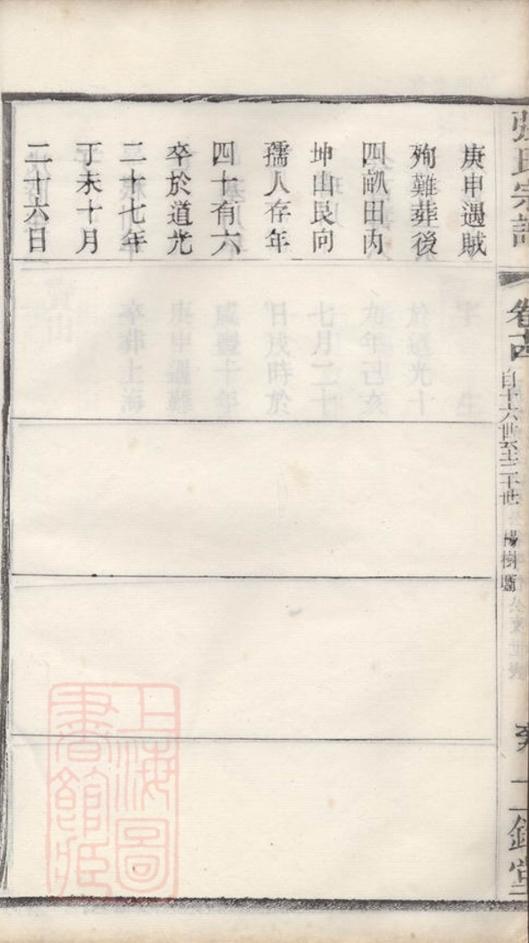 庚申遇賊
殉難葬後
四畝田內
坤山艮向
孺人存年
四十有六
卒於道光
二十七年
丁未十月
二十六日
張氏宗譜
卷
自十六世至二十世
楊樹
上海圖書館藏